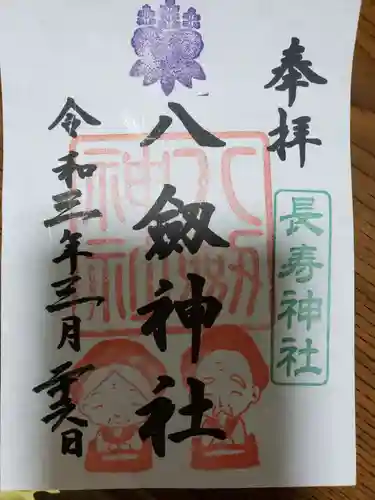 奉拝
長寿神社
八劔神社
八剱神社
令和三年三月二十六日